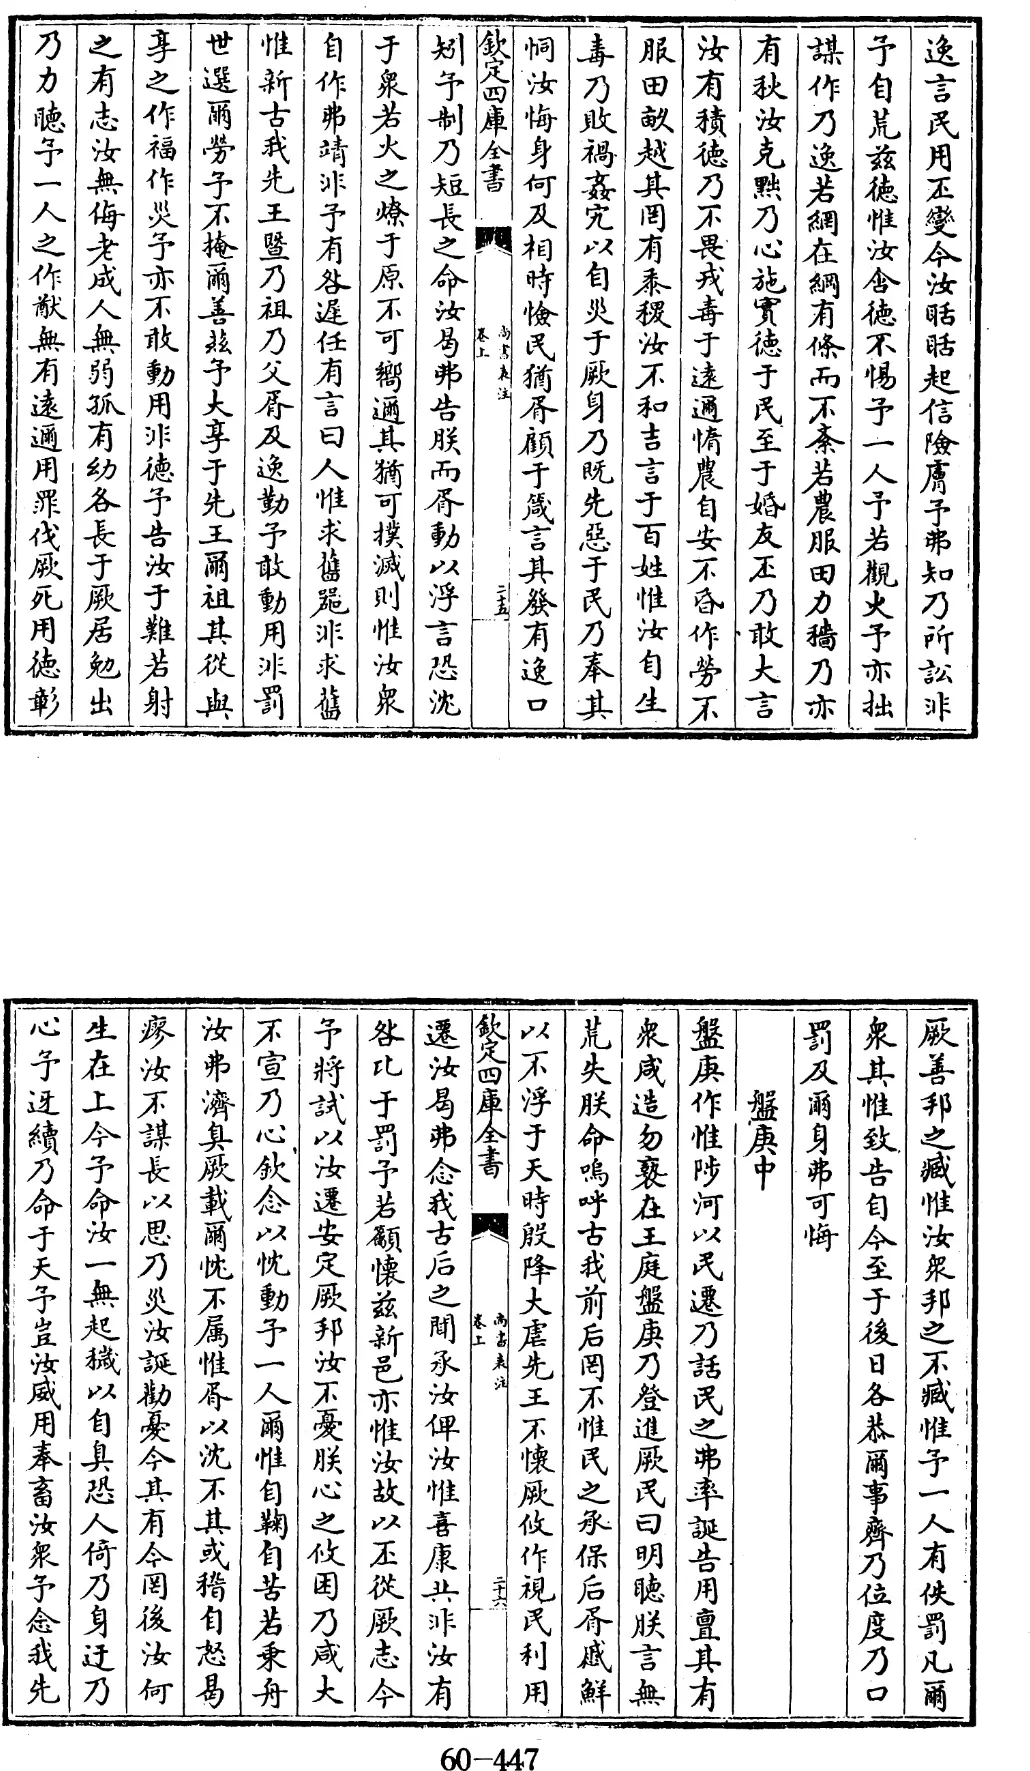 逸言民用丕變今汝聒聒起信險膚予弗知乃所訟非
予自荒茲徳惟汝含徳不惕予一人予若觀火予亦拙
謀作乃逸若網在綱有條而不紊若農服田力穡乃亦
有秋汝克黜乃心施實徳于民至于婚友丕乃敢大言
汝有積徳乃不畏戎毒于逺邇惰農自安不昏作勞不
服田畝越其罔有黍稷汝不和吉言于百姓惟汝自生
毒乃敗禍姦宄以自災于厥身乃既先惡于民乃奉其
恫汝悔身何及相時憸民猶胥顧于箴言其發有逸口
欽定四庫全書
尚書表注
卷上
二十五
矧予制乃短長之命汝曷弗告朕而胥動以浮言恐沈
于衆若火之燎于原不可嚮邇其猶可撲滅則惟汝衆
自作弗靖非予有咎遲任有言曰人惟求舊器非求舊
惟新古我先王暨乃祖乃父胥及逸勤予敢動用非罰
世選爾勞予不掩爾善茲予大享于先王爾祖其從與
享之作福作災予亦不敢動用非徳予告汝于難若射
之有志汝無侮老成人無弱孤有幼各長于厥居勉出
乃力聽予一人之作猷無有逺邇用罪伐厥死用徳彰
厥善邦之臧惟汝衆邦之不臧惟予一人有佚罰凡爾
衆其惟致告自今至于後日各恭爾事齊乃位度乃口
罰及爾身弗可悔
盤庚中
盤庚作惟陟河以民遷乃話民之弗率誕告用亶其有
衆咸造勿褻在王庭盤庚乃登進厥民曰明聽朕言無
荒失朕命嗚呼古我前后罔不惟民之承保后胥慼鮮
以不浮于天時殷降大虐先王不懷厥攸作視民利用
欽定四庫全書
尚書表注
卷上
二十六
遷汝曷弗念我古后之聞承汝俾汝惟喜康共非汝有
咎比于罰予若籲懷茲新邑亦惟汝故以丕從厥志今
予將試以汝遷安定厥邦汝不憂朕心之攸困乃咸大
不宣乃心欽念以忱動予一人爾惟自鞠自苦若乗舟
汝弗濟臭厥載爾忱不屬惟胥以沈不其或稽自怒曷
瘳汝不謀長以思乃災汝誕勸憂今其有今罔後汝何
生在上今予命汝一無起穢以自臭恐人倚乃身迂乃
心予迓續乃命于天予豈汝威用奉畜汝衆予念我先
60-447